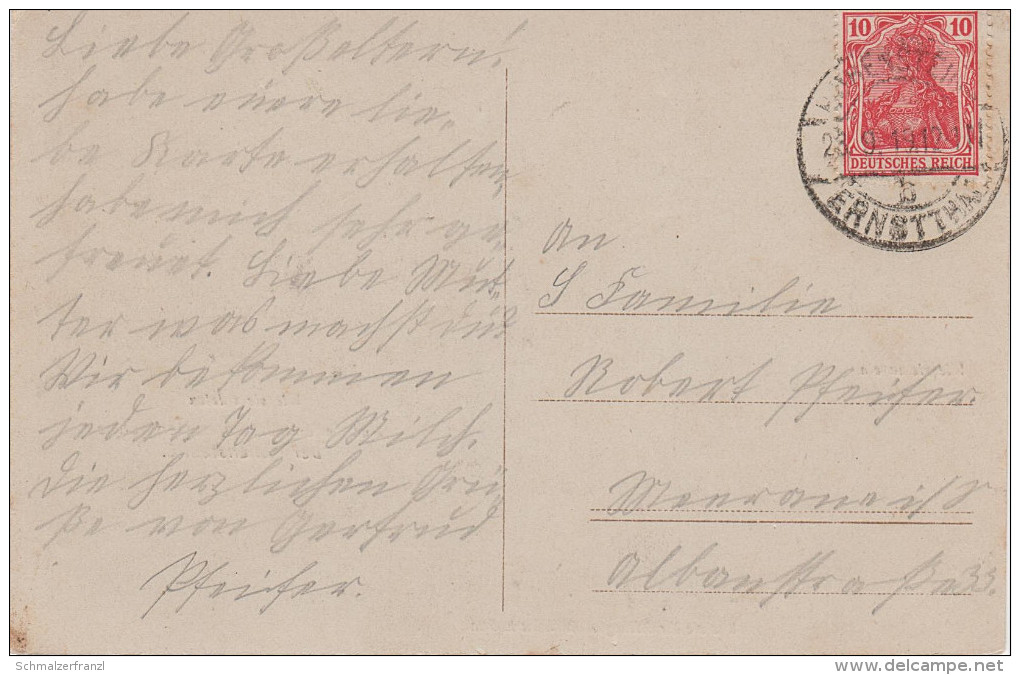 Liebe Großeltern!
habe euere lie-
be Karte erhalten
habe mich sehr ge-
freuet. Liebe Mut-
ter was machst du?
Wir bekommen
jeden Tag Milch.
Die herzlichen Grü-
ße von Gertrud
Pfeifer.
10 10
DEUTSCHES REICH
23.9.19
b
ERNSTTHAL
An
Familie
Robert Pfeifer
Meerane i/S
Albanstraße 33.
Schmalzerfranzl
www.delcampe.net